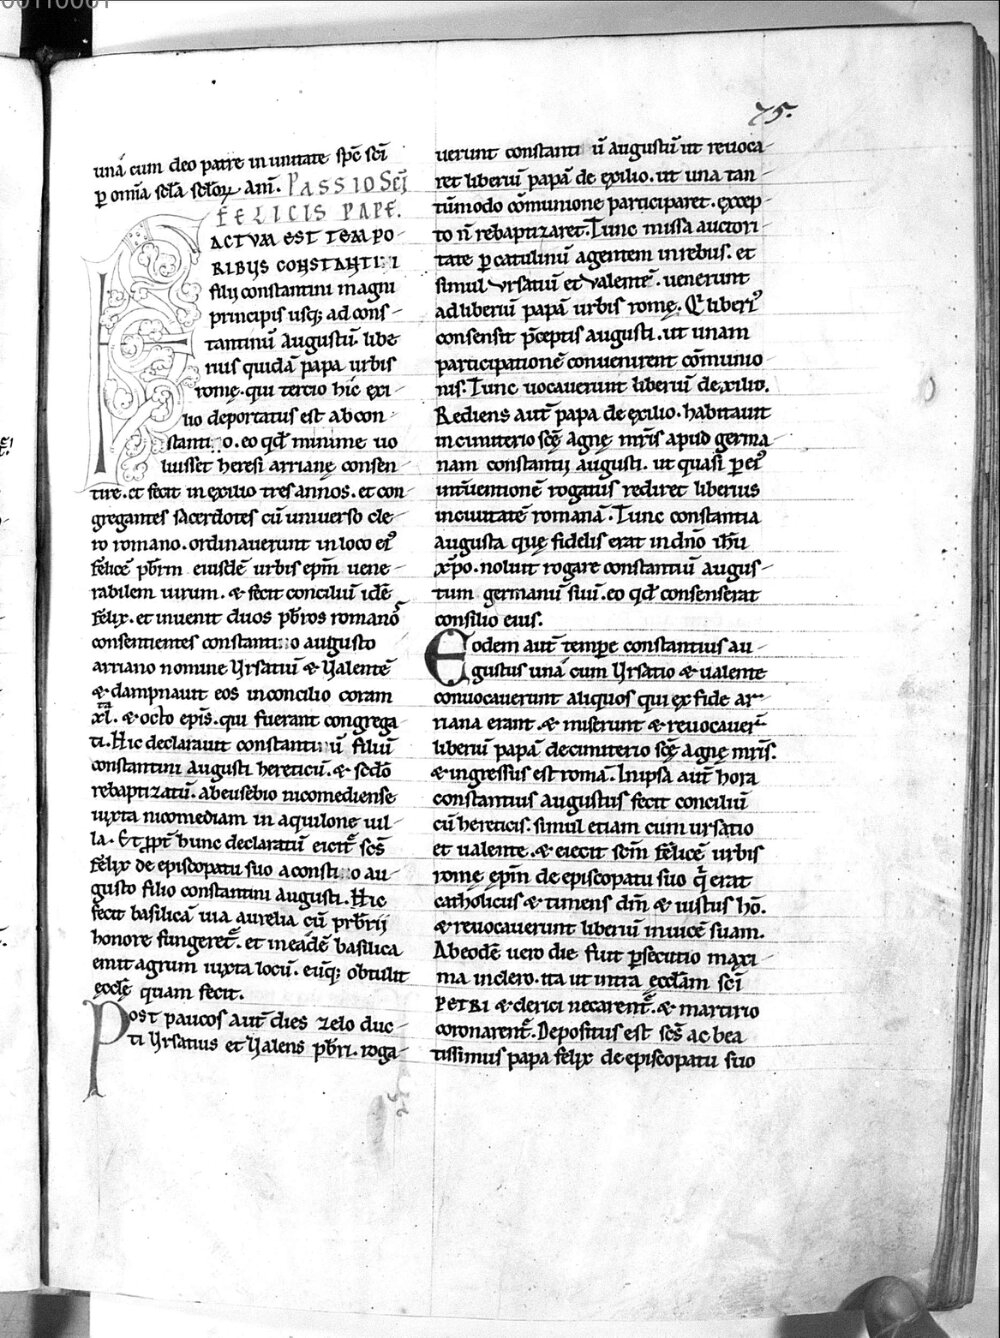 00110081
75.
una cum deo patre in unitate spc sci
p omia scla scloꝝ am̄. PASSIO SCI
FELICIS PAPE.
FACTVM EST TEMPO-
RIBVS CONSTANTINI
filij constantini magni
principis usq; ad cons-
tantinū augustū. libe
rius quidā papa urbis
romę. qui tercio hic exi-
lio deportatus est ab con-
stantio. eo qd minime uo
luisset heresi arrianę consen
tire. et fecit in exilio tres annos. et con
gregantes sacerdotes cū uniuerso cle-
ro romano. ordinauerunt in loco ei᾽
felicē pbrm eiusdē urbis epm̄ uene-
rabilem uirum. & fecit conciliū idē
felix. et inuenit duos pb̄ros romano᾽
consentientes constantio augusto
arriano nomine Vrsatiū & Valentē
& dampnauit eos in concilio coram
xl.ta & octo epis̄. qui fuerant congrega
ti. Hic declarauit constantiū filiū
constantini augusti hereticū. & scdō
rebaptizatū. ab eusebio nicomediense
iuxta nicomediam in aquilone uil-
la. Et ppt̄ hunc declaratū eicit᷑ scs̄
felix de episcopatu suo a constantio au-
gusto filio constantini augusti. Hic
fecit basilicā uia aurelia cū prb̄rij
honore fungeret᷑. et in eadē basilica
emit agrum iuxta locū. eūq; obtulit
ecclę quam fecit.
Post paucos aut̄ dies zelo duc-
ti Vrsatius et Valens pb̄ri. roga-
uerunt constantiū augustū ut reuoca-
ret liberiū papā de exilio. ut una tan-
tūmodo cōmunione participaret. excep-
to n̄ rebaptizaret. Tunc missa auctori-
tate p catulinū agentem in rebus. et
simul Vrsatiū et Valentē. uenerunt
ad liberiū papā urbis romę. Et liberi᾽
consensit p̄ceptis augusti. ut unam
participationē conuenirent cōmunio-
nis. Tunc uocauerunt liberiū de xilio.
Rediens aut̄ papa de exilio. habitauit
in cimiterio scę agnę mr̄is apud germa-
nam constantij augusti. ut quasi p ei᾽
int̄uentionē rogatus rediret liberius
in ciuitatē romanā. Tunc constantia
augusta quę fidelis erat in dn̄o ih̄u
xp̄o. noluit rogare constantiū augus-
tum germanū suū. eo qd consenserat
consilio eius.
Eodem aut̄ tempr̄e constantius au-
gustus unā cum Vrsatio & ualente
conuocauerunt aliquos qui ex fide ar-
riana erant. & miserunt & reuocauer̄
liberiū papā de cimiterio scę agnę mr̄is.
& ingressus est romā. In ipsa aut̄ hora
constantius augustus fecit conciliū
cū hereticis. simul etiam cum ursatio
et ualente. & eiecit scm̄ felicē urbis
romę ep̄m de episcopatu suo q̄ erat
catholicus & timens dm̄ & iustus hō.
& reuocauerunt liberiū in uicē suam.
Ab eodē uero die fuit psecutio maxi-
ma in clero. ita ut intra ecclam sci
PETRI & clerici necarent᷑. & martirio
coronarent᷑. Depositus est scs̄ ac bea
tissimus papa felix de episcopatu suo